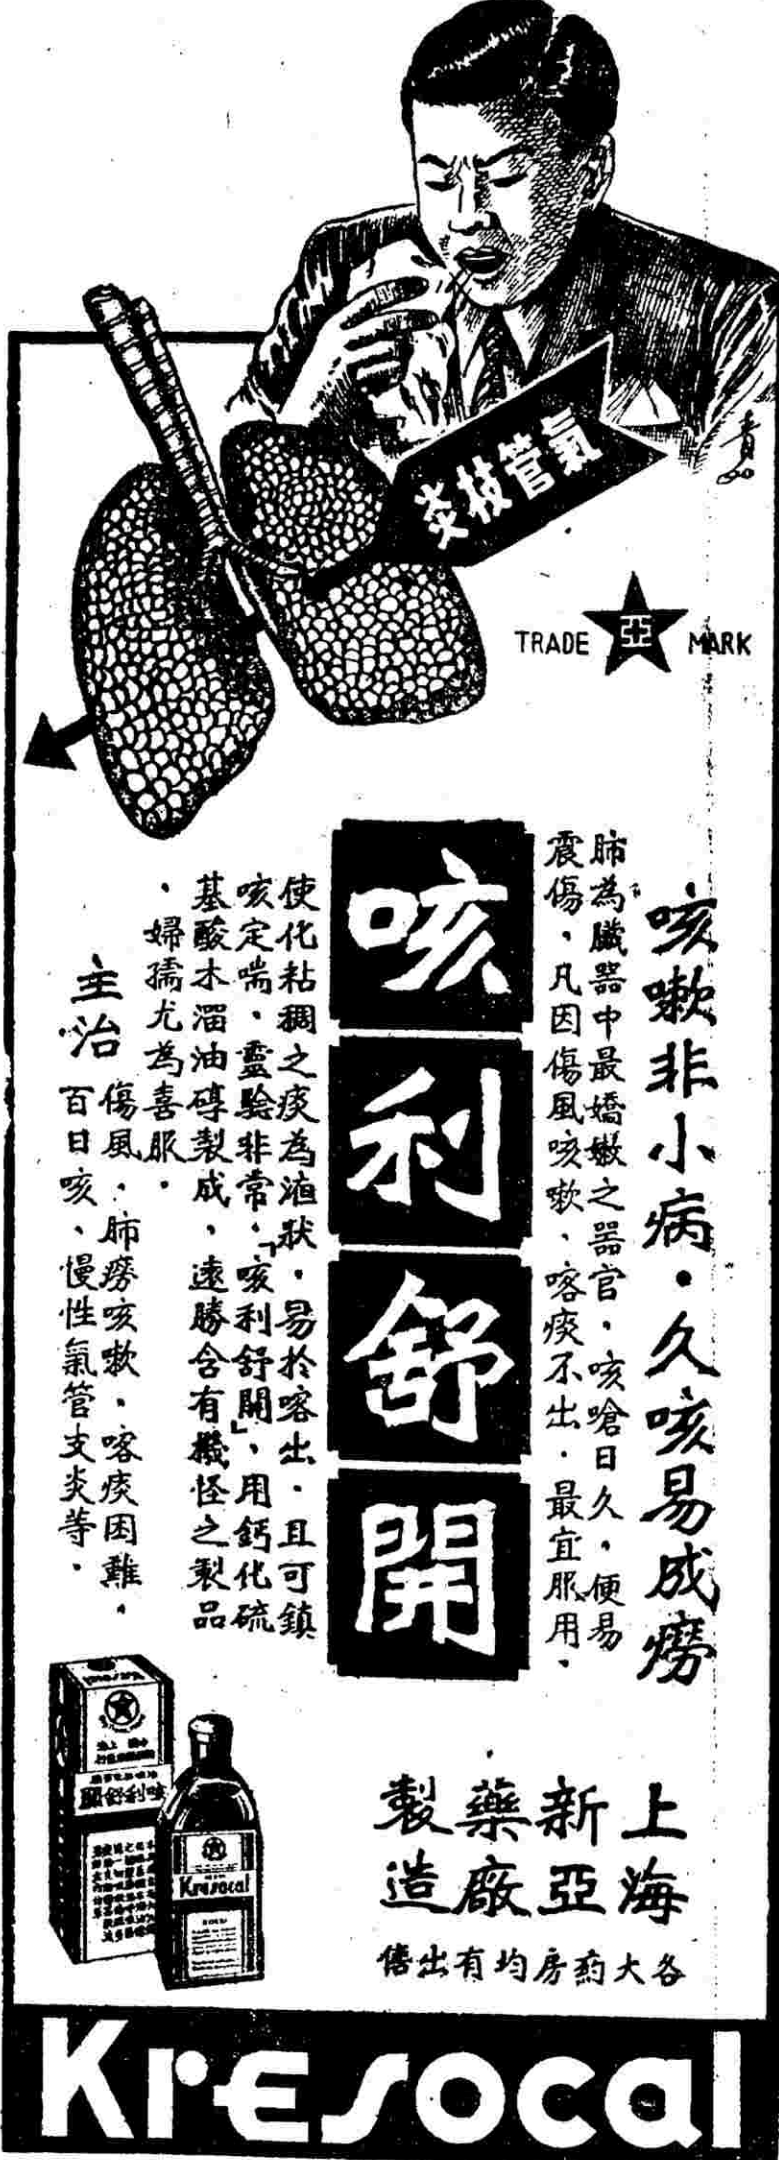 氣管枝炎
TRADE 亞 MARK
咳嗽非小病・久咳易成癆
肺為臟器中最嬌嫩之器官，咳嗆日久，便易
震傷，凡因傷風咳嗽、喀痰不出，最宜服用．
咳利舒開
使化粘稠之痰為液狀，易於喀出．且可鎮
咳定喘，靈驗非常．「咳利舒開」，用鈣化硫
基酸木溜油礴製成，遠勝含有機怪之製品
，婦孺尤為喜服．
主治
傷風，肺癆咳嗽，喀痰困難，
百日咳、慢性氣管支炎等．
咳利舒開
Kresocal
上海
新亞
藥廠
製造
各大葯房均有出售
Kresocal